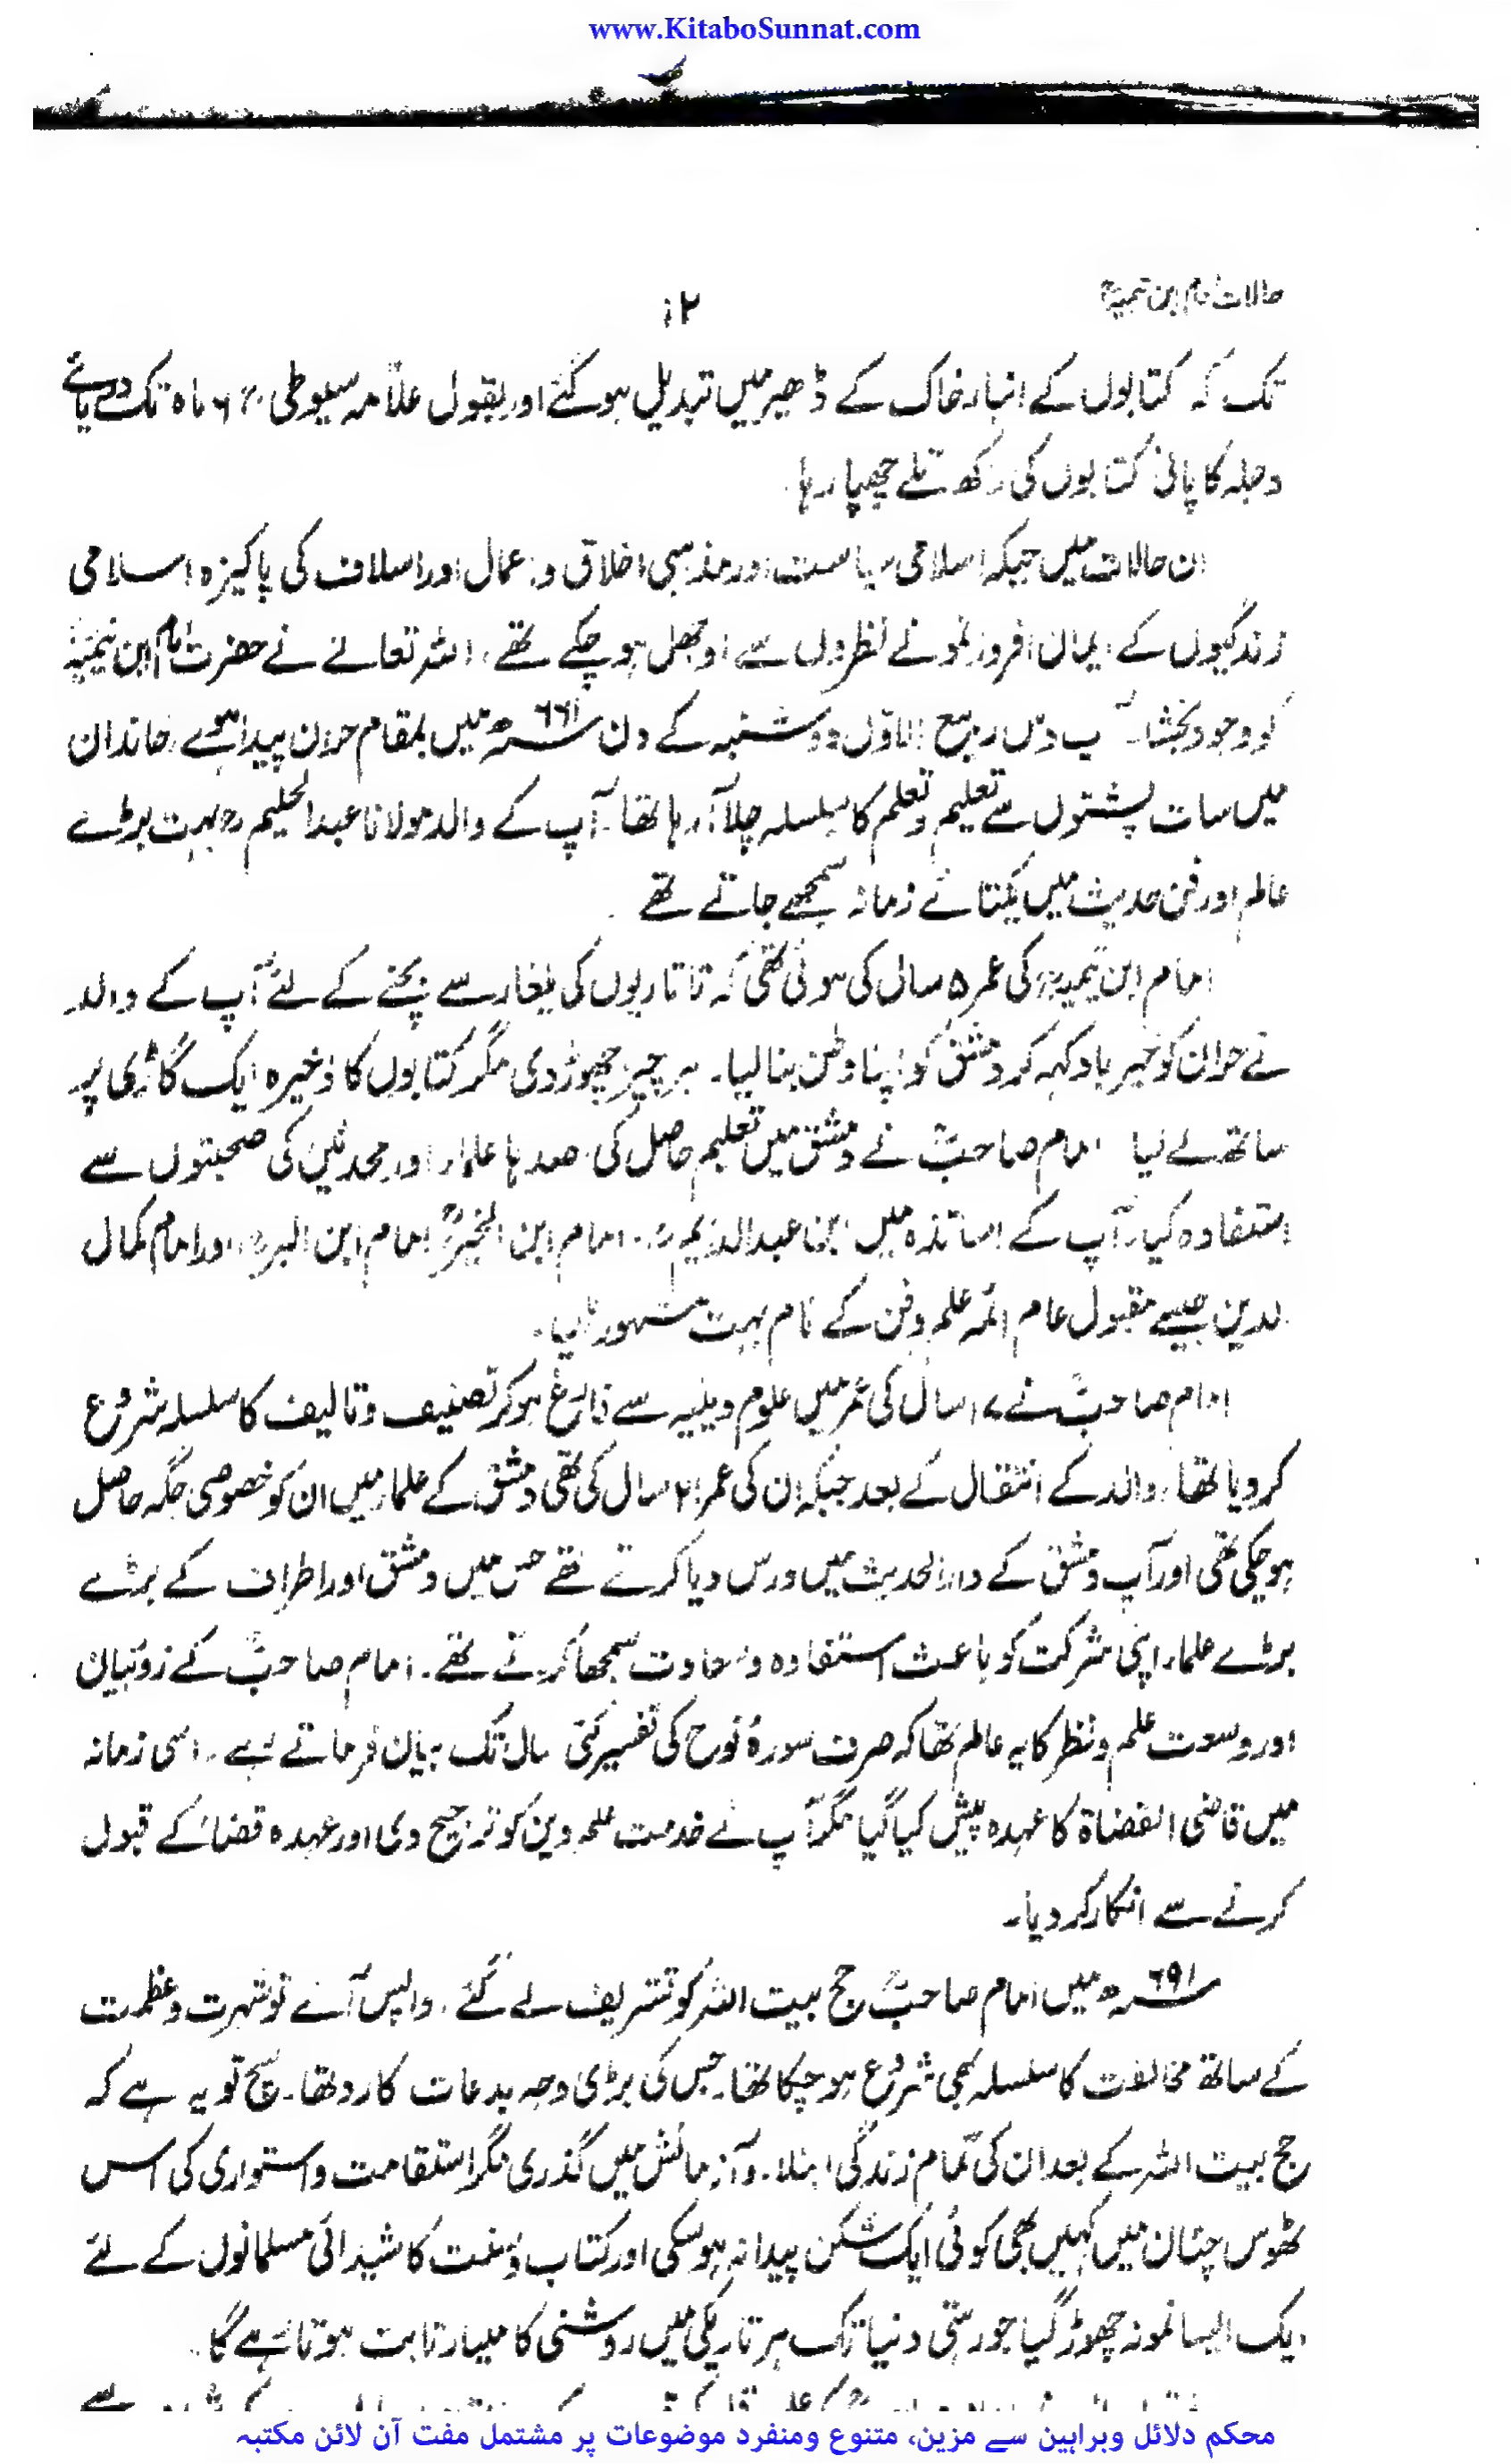 www.KitaboSunnat.com
حالات امام ابن تیمیہؒ
۱۲
تک کہ کتابوں کے انبار خاک کے ڈھیر میں تبدیل ہو گئے اور بقول علامہ سیوطی ماہ تک دریائے
دجلہ کا پانی کتابوں کی راکھ تلے چھپا رہا۔
ان حالات میں جبکہ اسلامی سیاست اور مذہبی اخلاق و اعمال اور اسلاف کی پاکیزہ اسلامی
زندگیوں کے ایمان افروز نمونے نظروں سے اوجھل ہو چکے تھے، اللہ تعالے نے حضرت امام ابن تیمیہؒ
کو وجود بخشا۔ آپ دس ربیع الاوّل دوشنبہ کے دن ۶۶۱ھ میں بمقام حران پیدا ہوئے، خاندان
میں سات پشتوں سے تعلیم و تعلم کا سلسلہ چلا آ رہا تھا۔ آپ کے والد مولانا عبدالحلیم رح بہت بڑے
عالم اور فن حدیث میں یکتائے زمانہ سمجھے جاتے تھے۔
امام ابن تیمیہؒ کی عمر ۵ سال کی ہوئی تھی کہ تاتاریوں کی یلغار سے بچنے کے لئے آپ کے والد
نے حران کو خیر باد کہہ کر دمشق کو اپنا وطن بنا لیا۔ ہر چیز چھوڑ دی مگر کتابوں کا ذخیرہ ایک گاڑی پر
ساتھ لے لیا امام صاحبؒ نے دمشق میں تعلیم حاصل کی۔ صدہا علماء اور محدثین کی صحبتوں سے
استفادہ کیا، آپ کے اساتذہ میں ابن عبدالدائم رح، امام ابن الخیرؒ امام ابن الیسرؒ، اور امام کمال
الدین جیسے مقبول عام ائمہ علم و فن کے نام بہت مشہور ہیں۔
امام صاحبؒ نے ۱۷ سال کی عمر میں علوم دینیہ سے فارغ ہو کر تصنیف و تالیف کا سلسلہ شروع
کر دیا تھا، والد کے انتقال کے بعد جبکہ ان کی عمر ۲۱ سال کی تھی دمشق کے علماء میں ان کو خصوصی جگہ حاصل
ہو چکی تھی اور آپ دمشق کے دارالحدیث میں درس دیا کرتے تھے جس میں دمشق اور اطراف کے بڑے
بڑے علماء اپنی شرکت کو باعث استفادہ و سعادت سمجھا کرتے تھے۔ امام صاحبؒ کے زور بیان
اور وسعت علم و نظر کا یہ عالم تھا کہ صرف سورۂ نوح کی تفسیر کئی سال تک بیان فرماتے رہے۔ اسی زمانہ
میں قاضی القضاۃ کا عہدہ پیش کیا گیا مگر آپ نے خدمت علم و دین کو ترجیح دی اور عہدہ قضاء کے قبول
کرنے سے انکار کر دیا۔
۶۹۱ھ میں امام صاحبؒ حج بیت اللہ کو تشریف لے گئے، واپس آئے تو شہرت و عظمت
کے ساتھ مخالفت کا سلسلہ بھی شروع ہو چکا تھا۔ جس کی بڑی وجہ بدعات کا رد تھا۔ سچ تو یہ ہے کہ
حج بیت اللہ کے بعد ان کی تمام زندگی ابتلاء و آزمائش میں گذری مگر استقامت و استواری کی اس
ٹھوس چٹان میں کہیں بھی کوئی ایک شکن پیدا نہ ہو سکی اور کتاب و سنت کا شیدائی مسلمانوں کے لئے
ایک ایسا نمونہ چھوڑ گیا جو رہتی دنیا تک ہر تاریکی میں روشنی کا مینار ثابت ہوتا رہے گا۔
محکم دلائل وبراہین سے مزین، متنوع ومنفرد موضوعات پر مشتمل مفت آن لائن مکتبہ